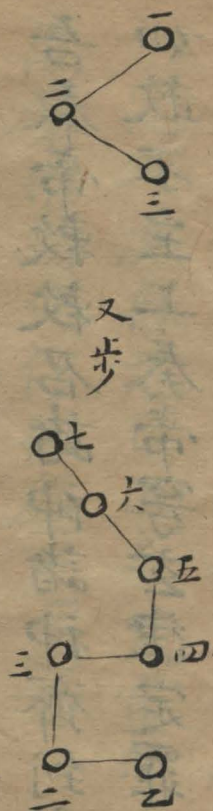 一
二
三
又步
七
六
五
四
三
二
乙